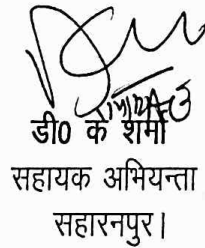 डी0 के शर्मा
सहायक अभियन्ता
सहारनपुर।